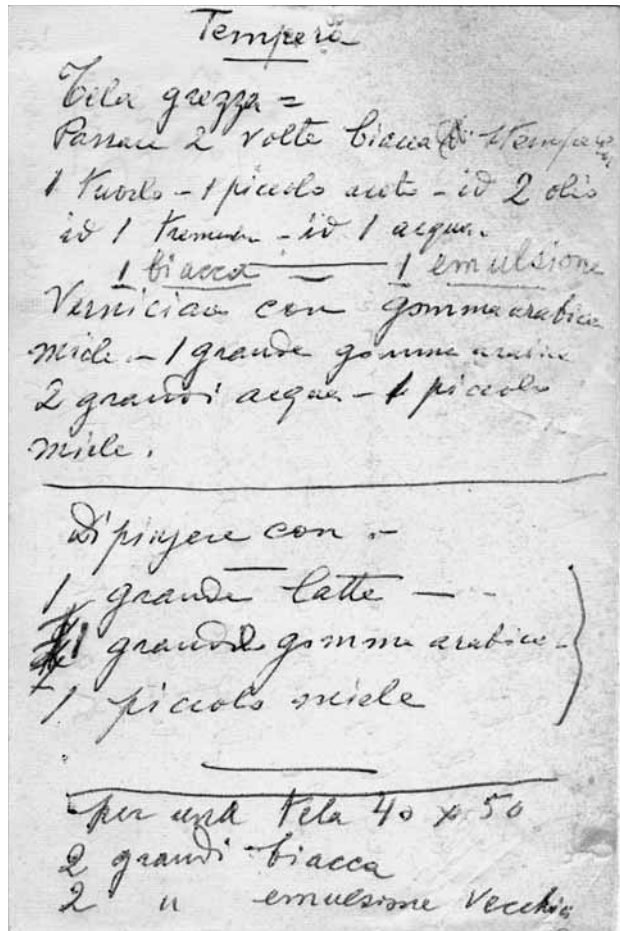 Tempera
Tela grezza =
Passare 2 volte biacca di stempera
1 tuorlo - 1 piccolo aceto - id 2 olio
id 1 trementina - id 1 acqua.
1 biacca — 1 emulsione
Verniciare con gomma arabica
miele - 1 grande gomma arabica
2 grandi acqua - 1 piccolo
miele.
Dipingere con -
1 grande latte —
1 grande gomma arabica -
1 piccolo miele
per una tela 40 x 50
2 grandi biacca
2 " emulsione vecchia